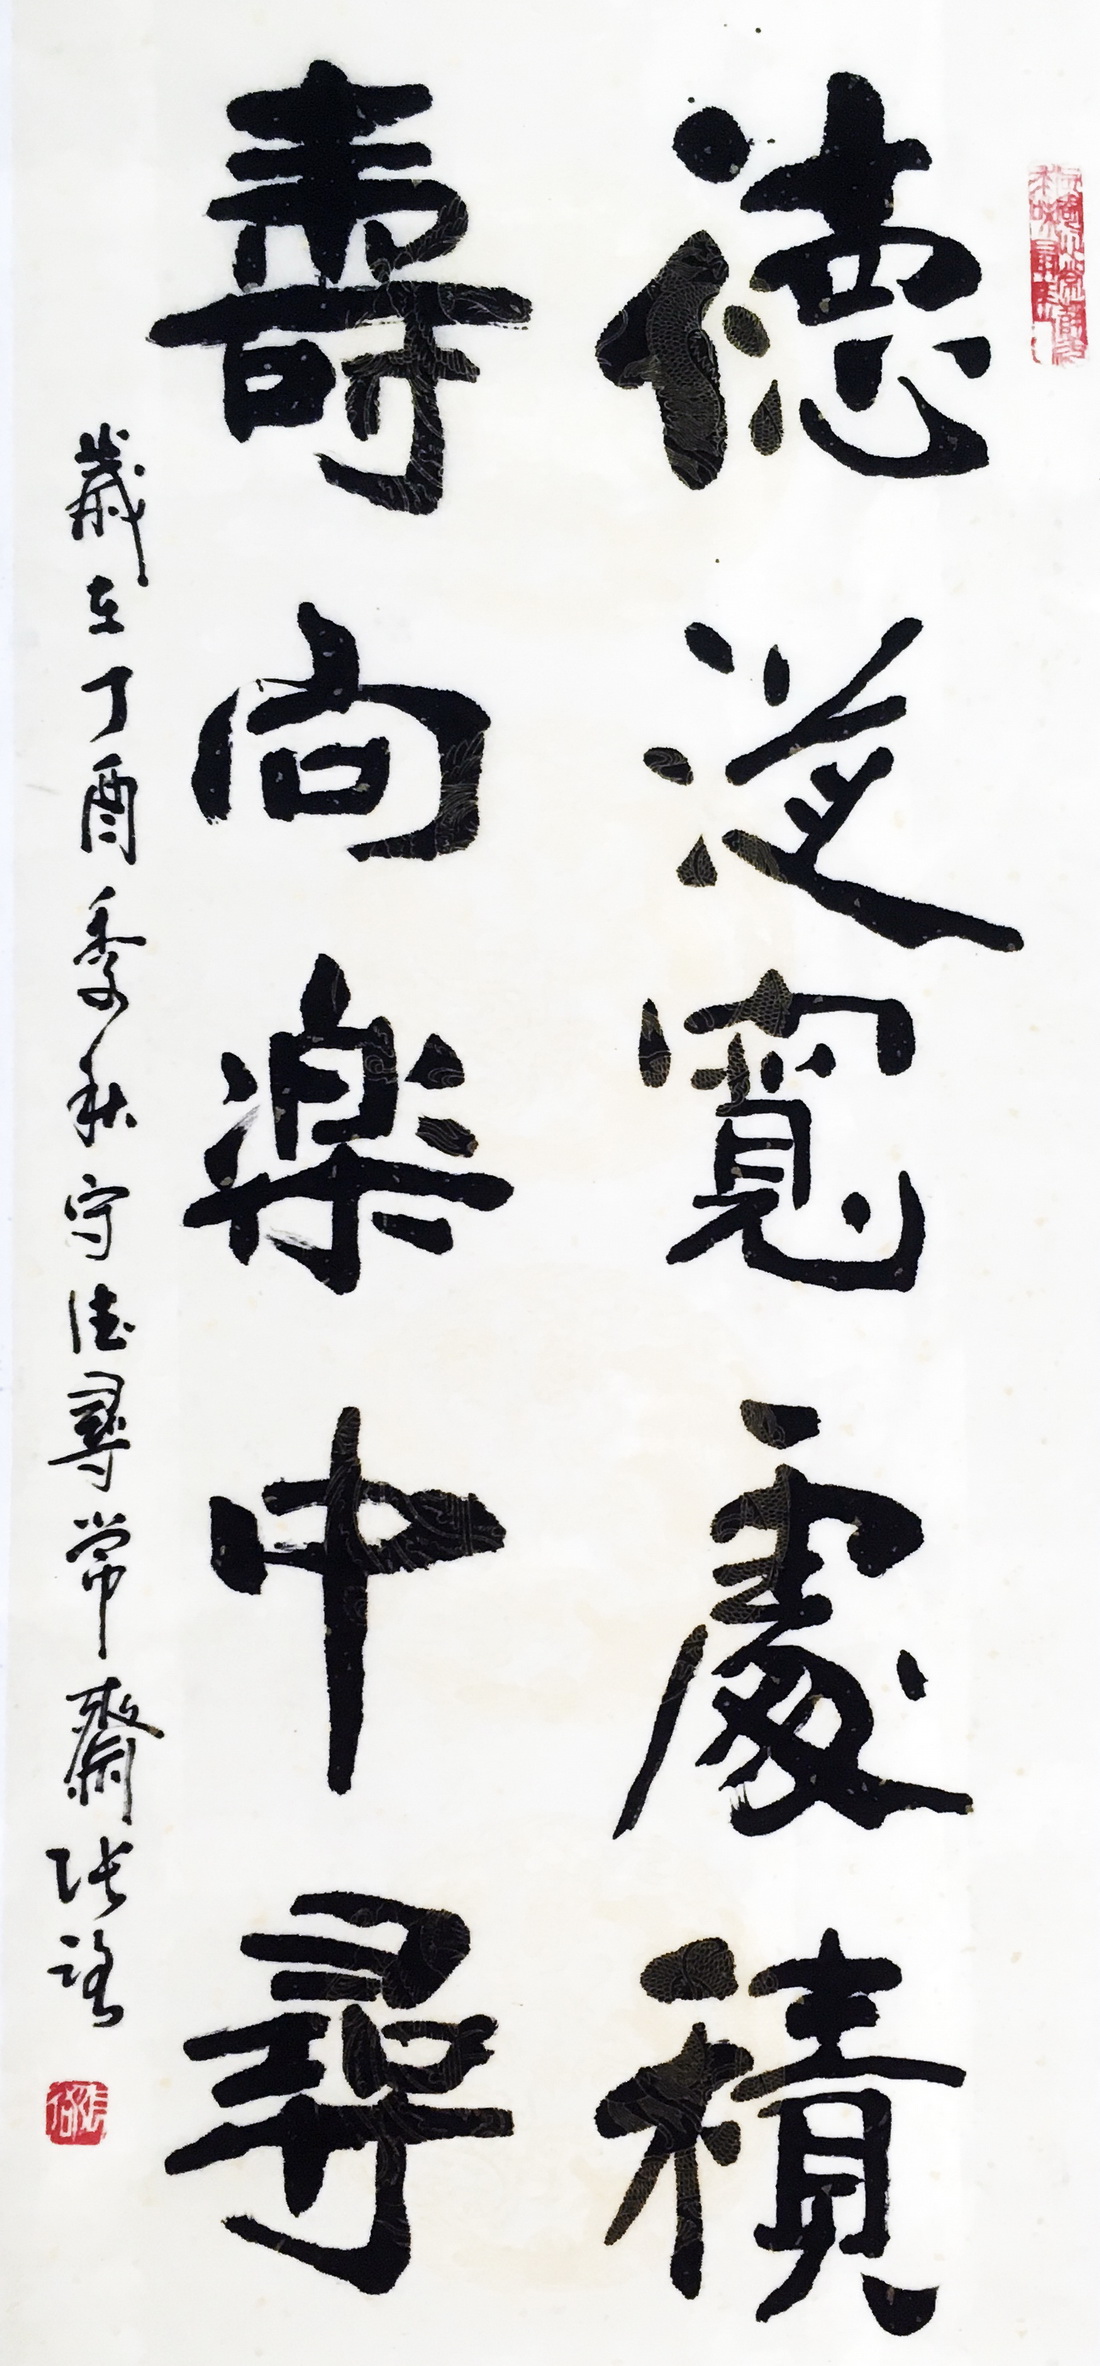 德從寬處積
壽向樂中尋
歲在丁酉季秋守法尋常齋張譣